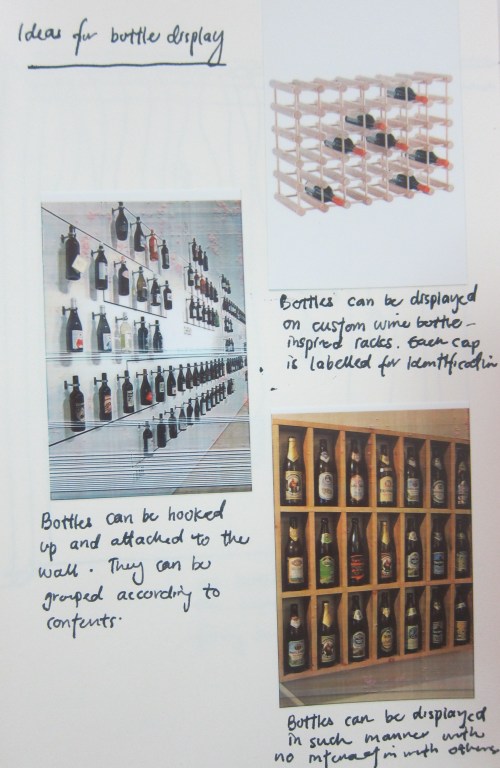 Ideas for bottle display
Bottles can be displayed
on custom wine bottle-
inspired racks. Each cap
is labelled for identification
Bottles can be hooked
up and attached to the
wall. They can be
grouped according to
contents.
Bottles can be displayed
in such manner with
no interaction with others